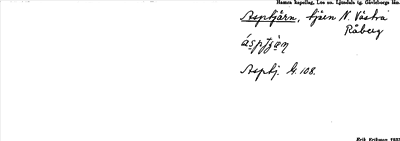 Hamra kapellag, Los sn. Ljusdals tg. Gävleborgs län.
Aspbjärn, tjärn N. Västra
Råberg
Aspbj. G. 108.
Erik Eriksson 193